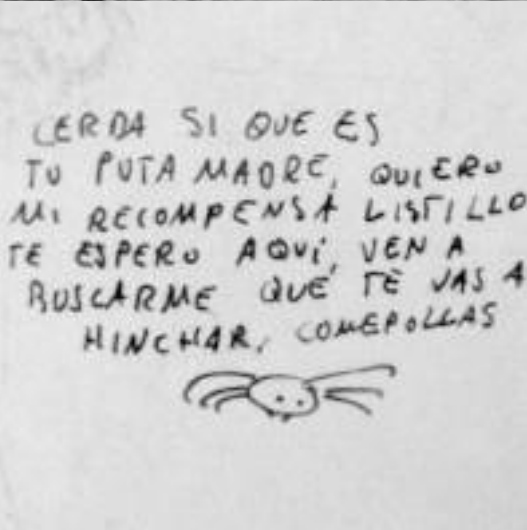 CERDA SI QUE ES
TU PUTA MADRE, QUIERO
MI RECOMPENSA LISTILLO
TE ESPERO AQUÍ, VEN A
BUSCARME QUE TE VAS A
HINCHAR, COMEPOLLAS